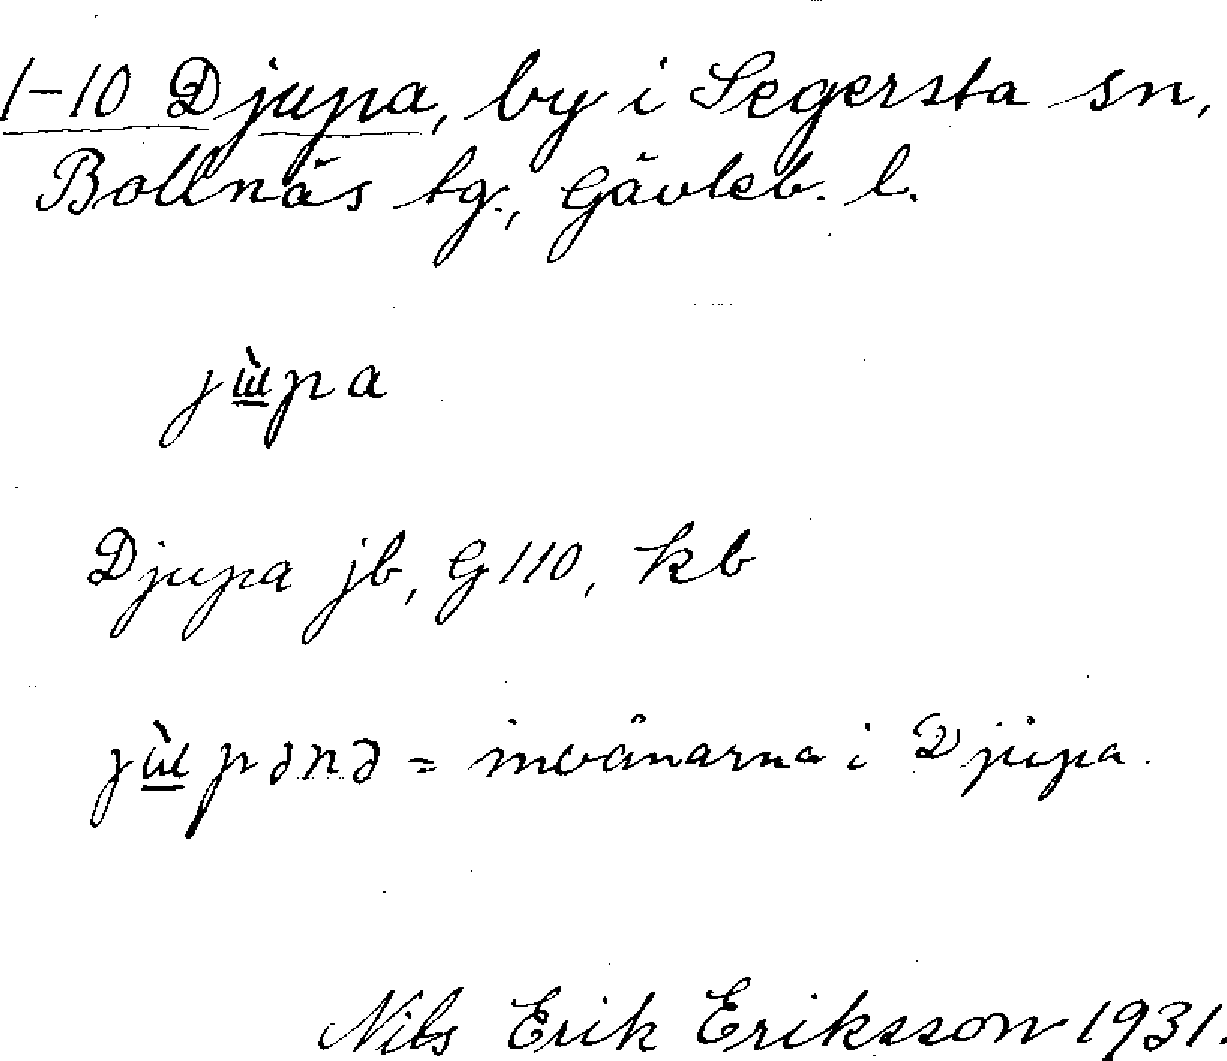 1-10 Djupa, by i Segersta sn,
Bollnäs tg., Gävleb. l.
jɯ̲̀pa
Djupa jb, G 110, kb
jɯ̲̀pənə = invånarna i Djupa.
Nils Erik Eriksson 1931.